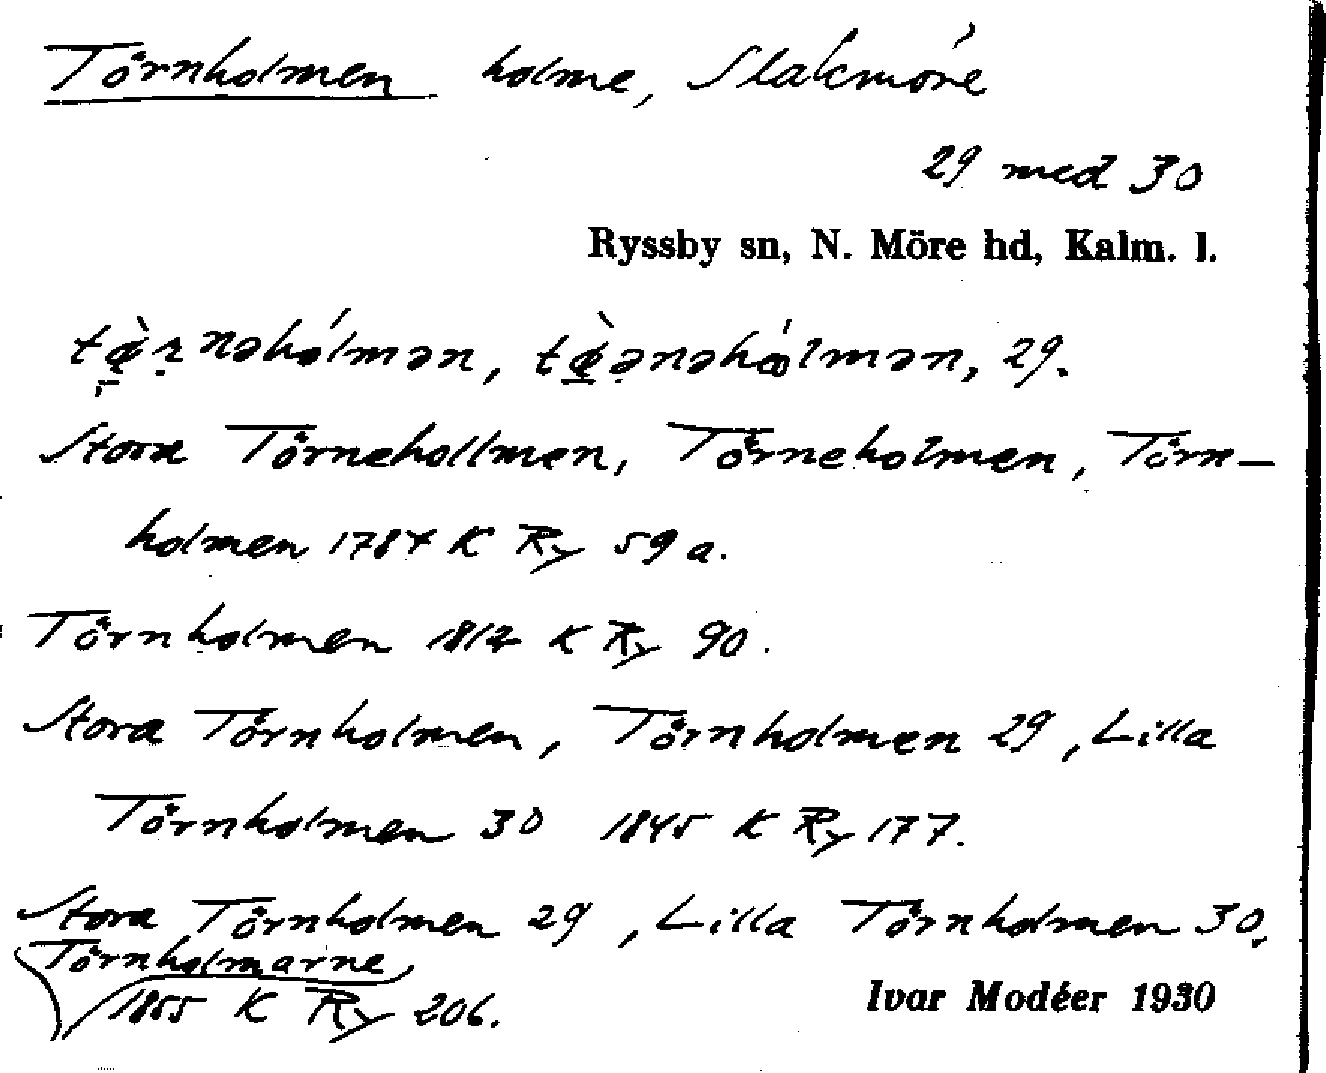 Törnholmen holme, Slakmöre
29 med 30
Ryssby sn, N. Möre hd, Kalm. l.
tø̀rnəhólmən, tø̀ənəhólmən, 29.
Stora Törnehollmen, Törneholmen, Törn-
holmen 1784 K Ry 59 a.
Törnholmen 1812 K Ry 90.
Stora Törnholmen, Törnholmen 29, Lilla
Törnholmen 30 1845 K Ry 177.
Stora Törnholmen 29, Lilla Törnholmen 30,
Törnholmarne
1855 K Ry 206.
Ivar Modéer 1930